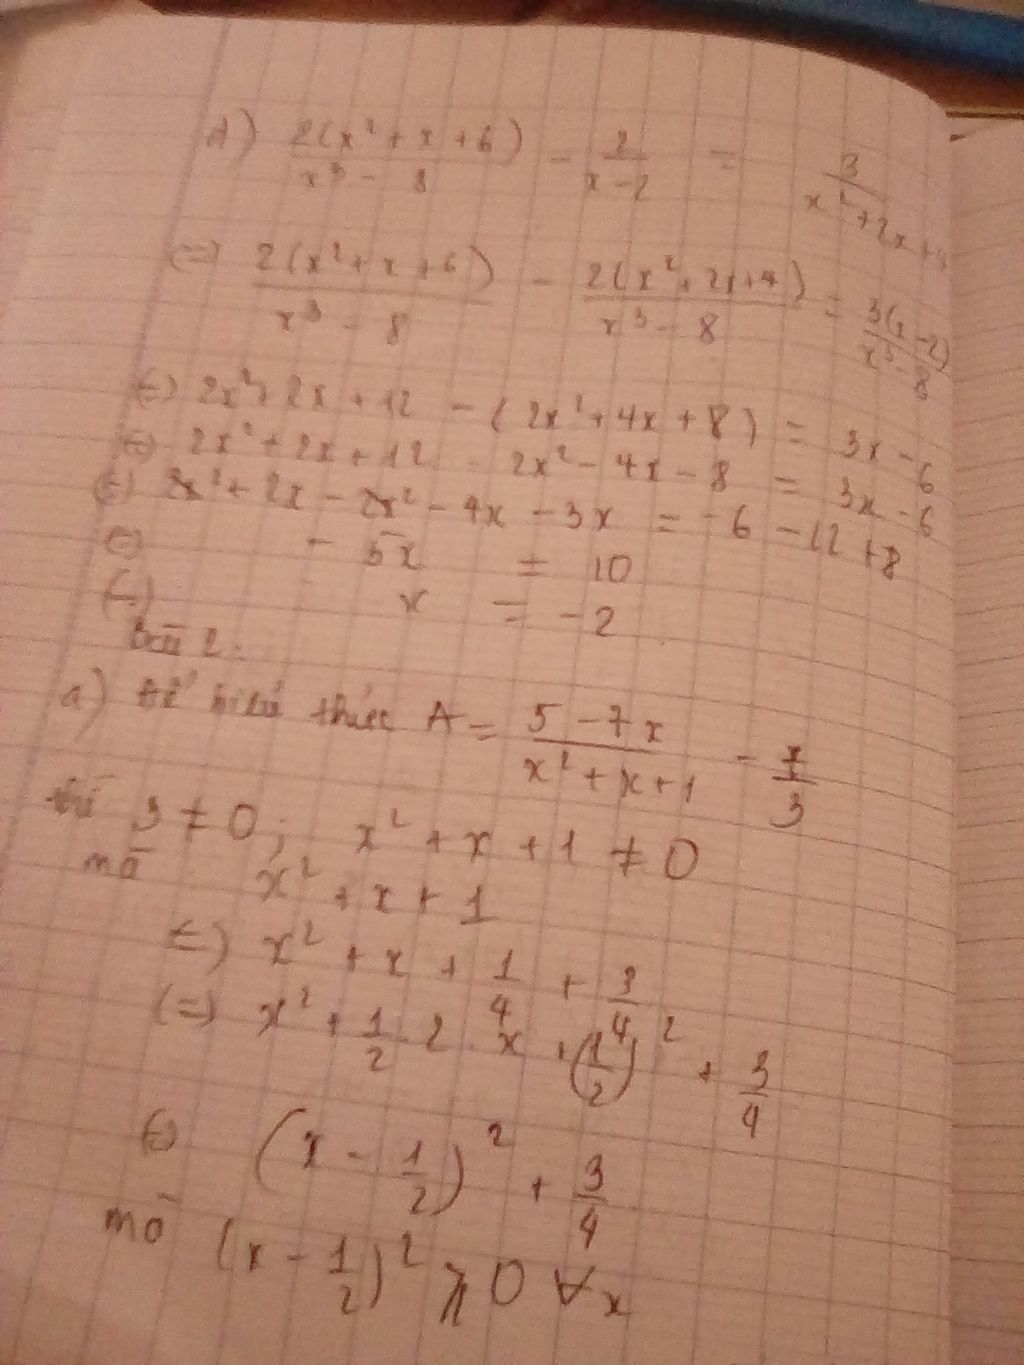 d) 2(x² + x + 6) / x³ - 8 - 2 / x - 2 = 3 / x² + 2x + 4
<=> 2(x² + x + 6) / x³ - 8 - 2(x² + 2x + 4) / x³ - 8 = 3(x - 2) / x³ - 8
<=> 2x² + 2x + 12 - (2x² + 4x + 8) = 3x - 6
<=> 2x² + 2x + 12 - 2x² - 4x - 8 = 3x - 6
<=> 2x² + 2x - 2x² - 4x - 3x = -6 - 12 + 8
<=> - 5x = 10
<=> x = -2
Bài 2:
a) Để biểu thức A = 5 - 7x / x² + x + 1 - x / 3
thì 3 ≠ 0; x² + x + 1 ≠ 0
mà x² + x + 1
<=> x² + x + 1/4 + 3/4
<=> x² + 1/2 . 2 . x + (1/2)² + 3/4
<=> (x - 1/2)² + 3/4
mà (x - 1/2)² ⩾ 0 ∀x